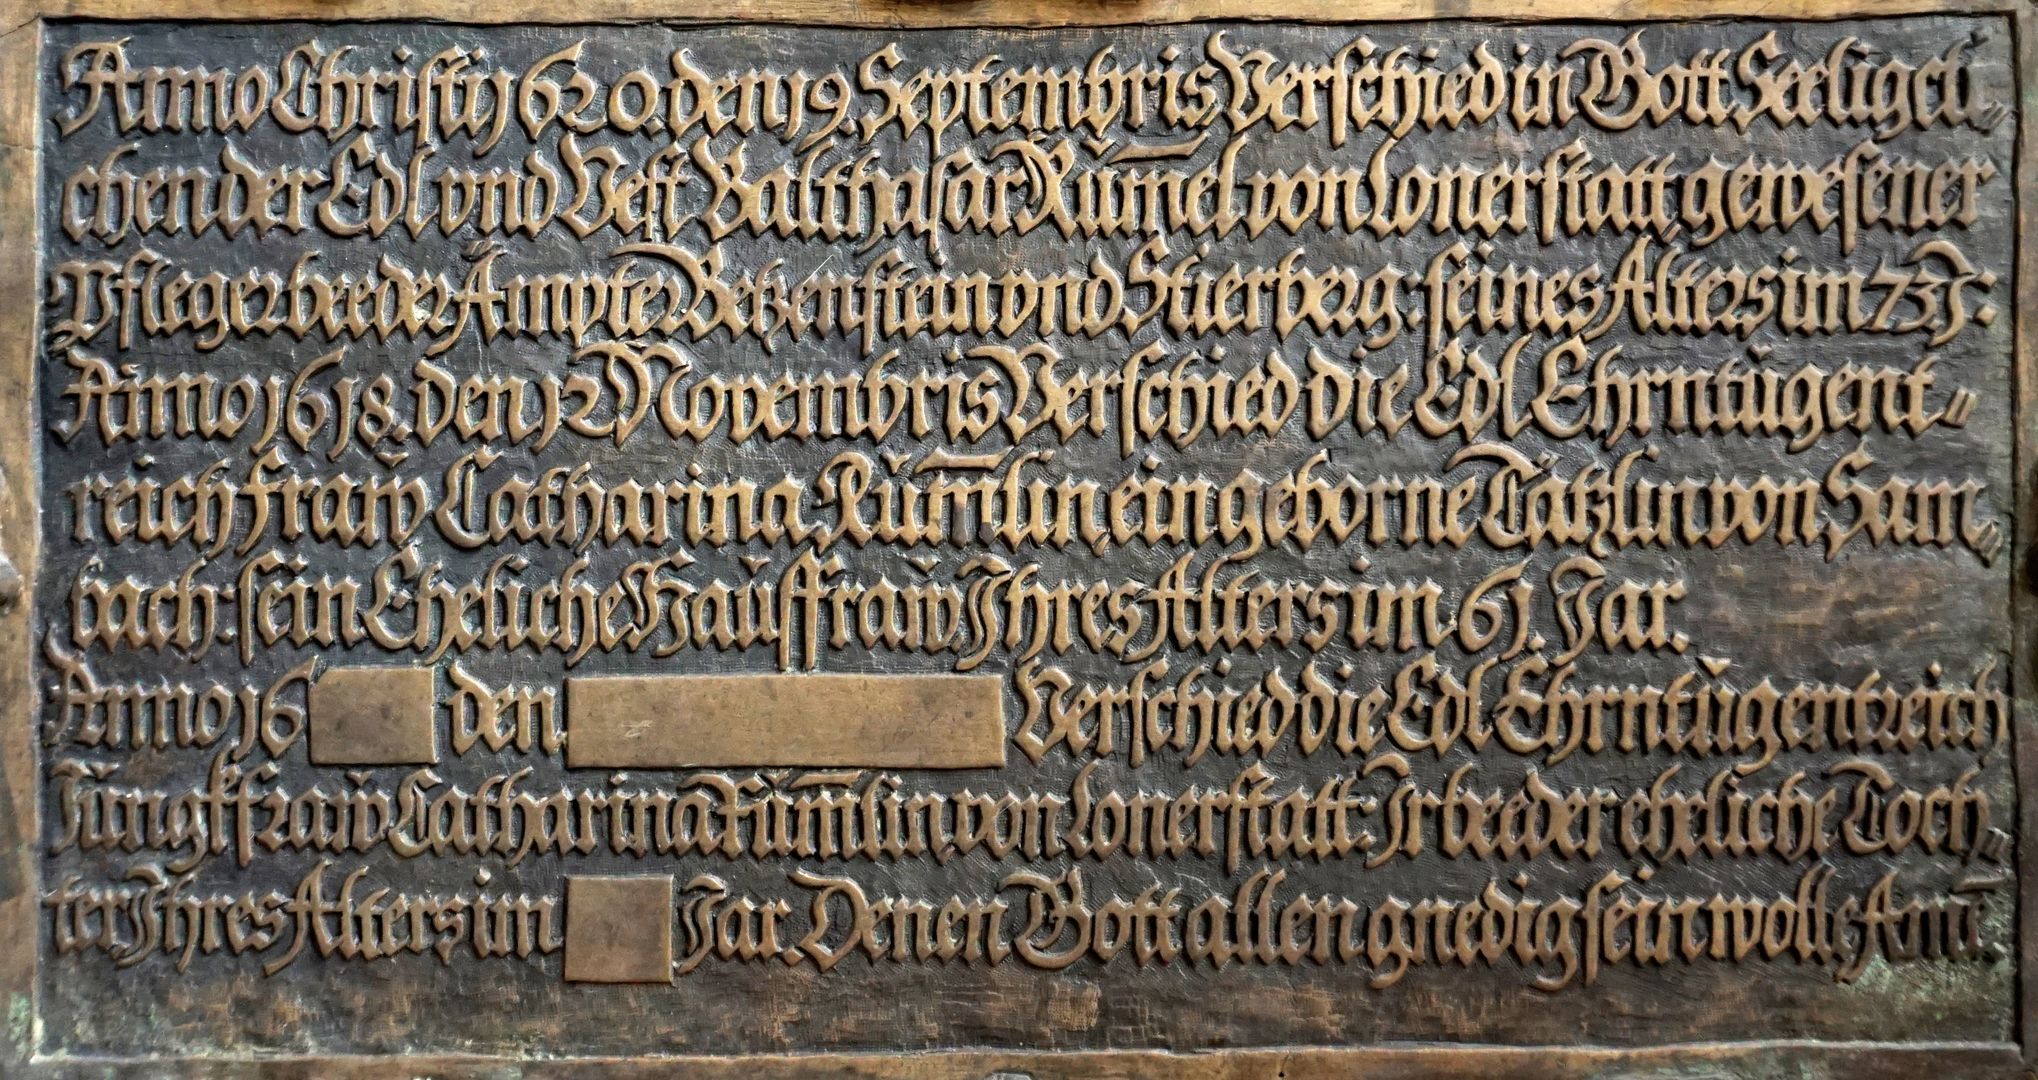 Anno Christi 1620. den 19. Septembris Verschied in Gott Seeligcli-
chen der Edl vnd Vest Balthasar Rům̅el von Lonerstatt, gewesener
Pfleger beeder Ämpter Betzenstein vnd Stierberg: seines Alters im 73. J:
Anno 1618. den 12 Novembris Verschied die Edl Ehrntůgent-
reich fraẘ Catharina Rům̅lin, ein geborne Tätzlin von Sam-
bach: sein Eheliche Haůsfraẘ Ihres Alters im 61. Jar.
Anno 16 den Verschied die Edl Ehrntůgentreich
Jůngkfraẘ Catharina Rům̅lin von Lonerstatt: Ir beeder eheliche Toch-
ter Ihres Alters im Jar. Denen Gott allen gnedig sein wolle, Am̅.